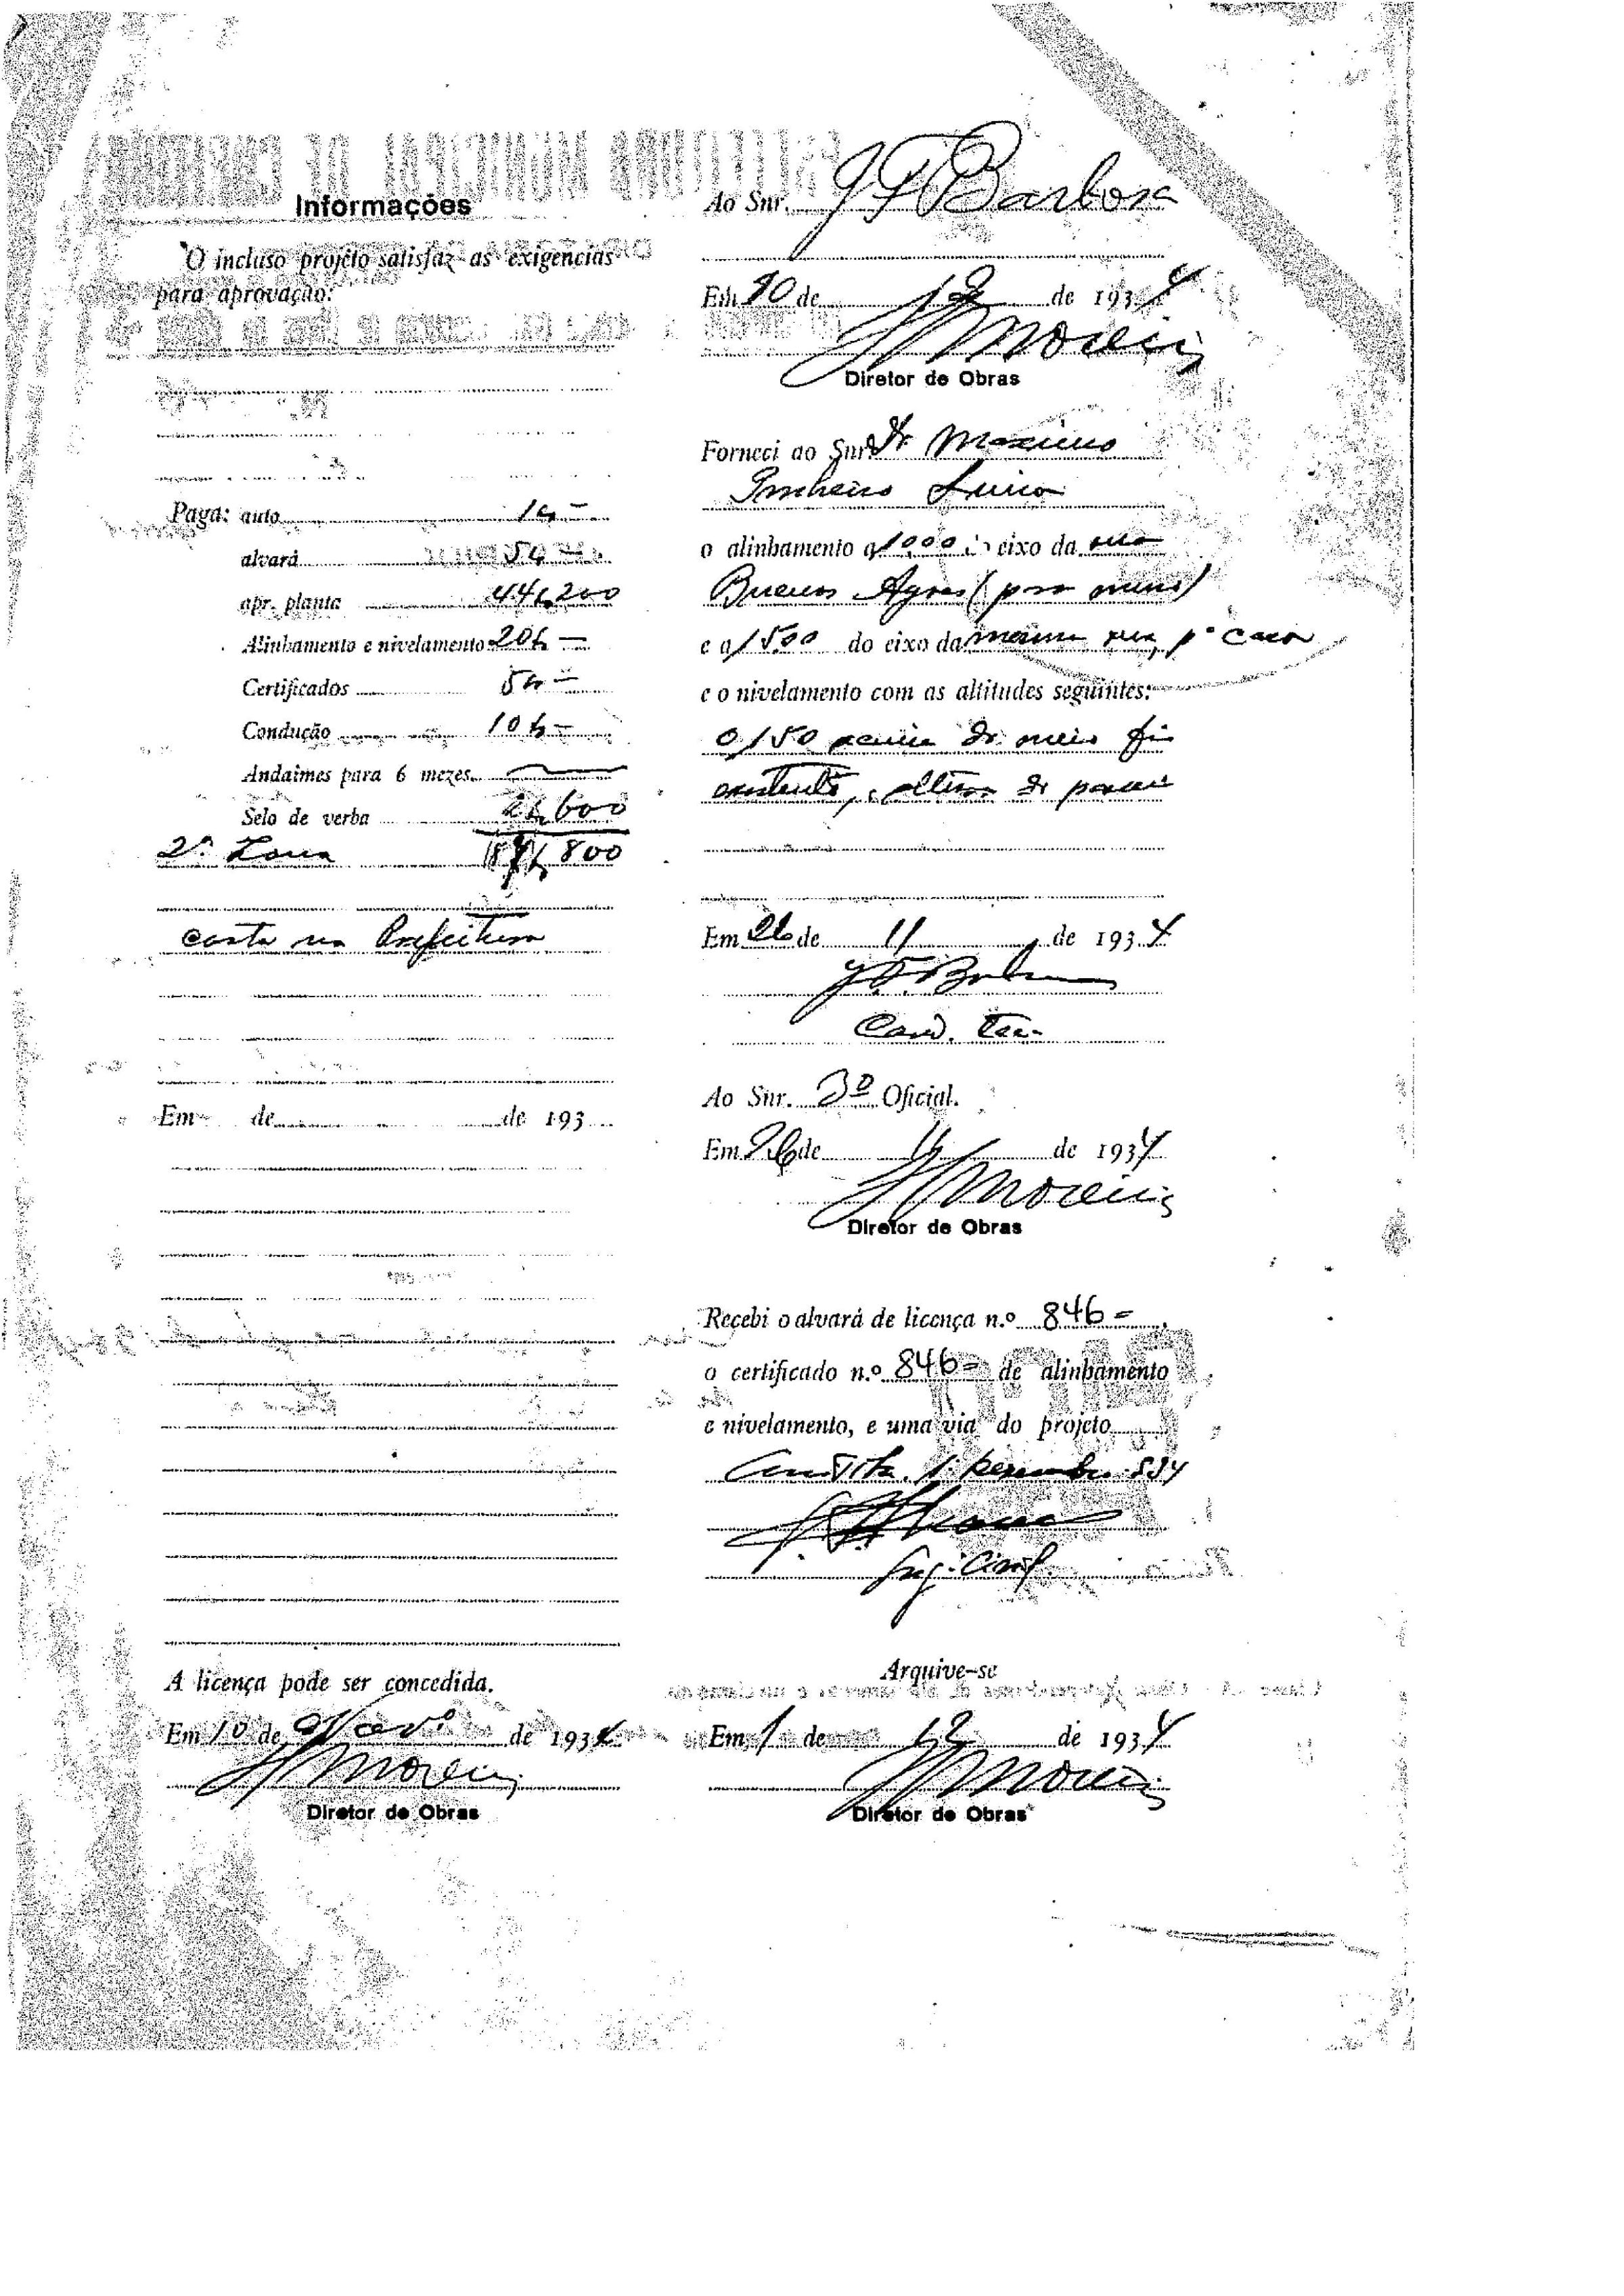 Informações
O incluso projéto satisfaz as exigencias
para aprovação:
Paga: auto 1$ -
alvará 5$ -
apr. planta 44$200
Alinhamento e nivelamento 20$ -
Certificados 5$ -
Condução 10$ -
Andaimes para 6 mezes
Selo de verba 600
2ª Zona 800
na Prefeitura
Em de de 193
A licença pode ser concedida.
Em 10 de Nov. de 1934
Diretor de Obras
Ao Snr. J F Barbosa
Em de de 1934
Diretor de Obras
Forneci ao Snr. Dr Maximo
Pinheiro Lima
o alinhamento a 10,00 do eixo da rua
Buenos Ayres (pro muro)
e a 15,00 do eixo da mesma rua, pª casa
e o nivelamento com as altitudes seguintes:
0,150 acima do meio fio
existente, altura do passeio
Em 26 de 11 de 1934
Cond. Tec.
Ao Snr. 3º Oficial.
Em 26 de 11 de 1934
Diretor de Obras
Recebi o alvará de licença n.º 846 =
o certificado n.º 846 = de alinhamento
e nivelamento, e uma via do projeto
Curitiba, 1 Dezembro 934
Eng. Civil
Arquive-se
Em 1 de 12 de 1934
Diretor de Obras